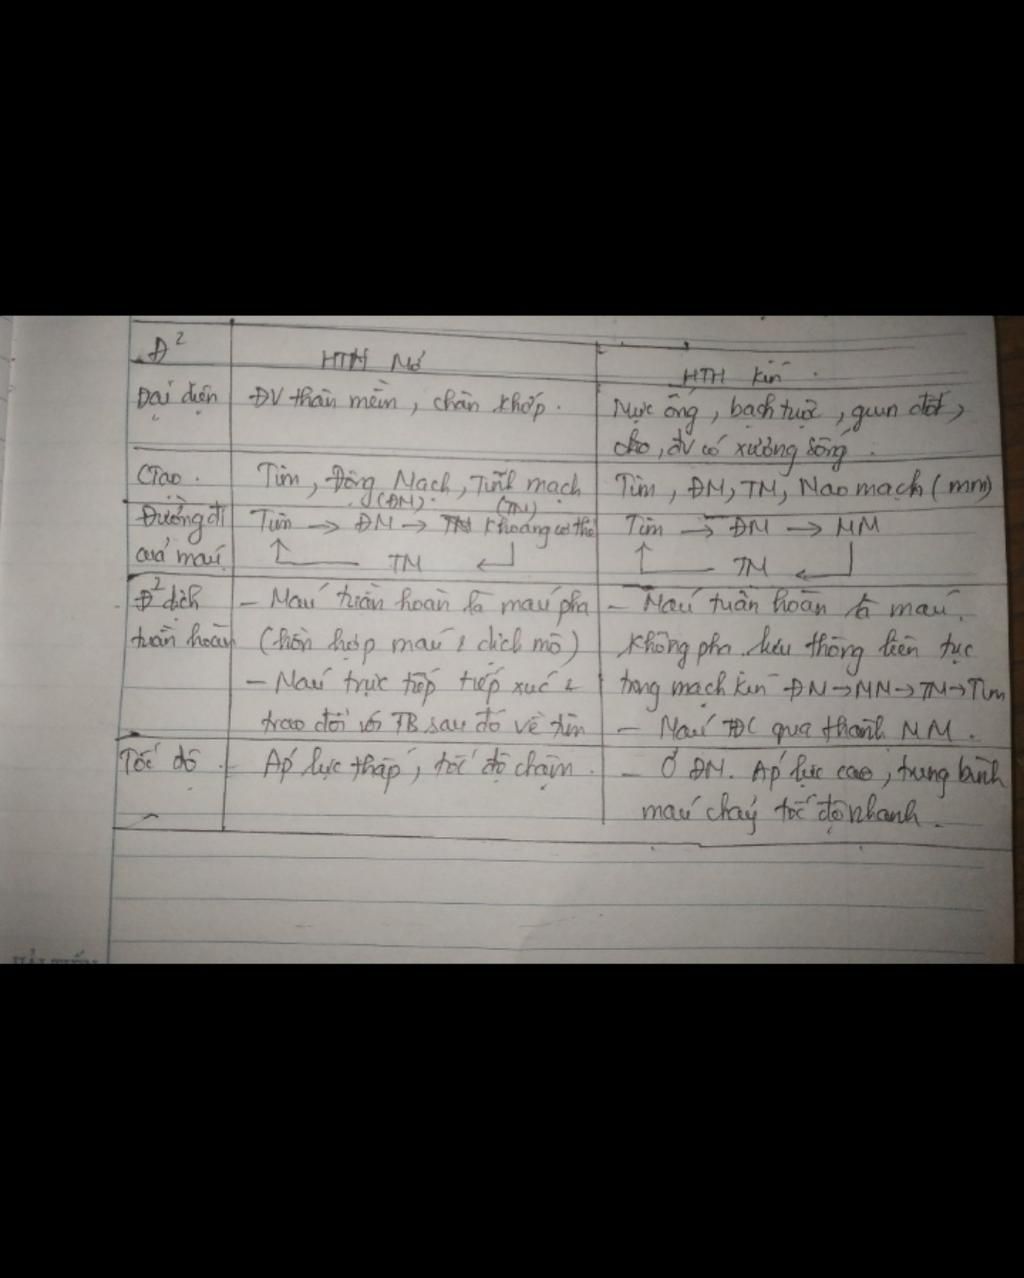 Đ² HTH Mở HTH kín.
Đại diện ĐV thân mềm, chân khớp. Mực ống, bạch tuộc, giun đốt,
ĐV có xương sống.
CTạo. Tim, Động Mạch, Tĩnh mạch Tim, ĐM, TM, Mao mạch (mm)
(ĐM). (TM)
Đường đi Tim → ĐM → Khoang cơ thể Tim → ĐM → MM
của máu TM TM
Đ² dịch - Máu tuần hoàn là máu pha - Máu tuần hoàn là máu
tuần hoàn (hỗn hợp máu & dịch mô) không pha lưu thông liên tục
- Máu trực tiếp tiếp xúc & trong mạch kín ĐM → MM → TM → Tim
trao đổi với TB sau đó về tim - Máu TĐC qua thành MM.
Tốc độ - Áp lực thấp, tốc độ chậm. - Ở ĐM. Áp lực cao, trung bình
máu chảy tốc độ nhanh.